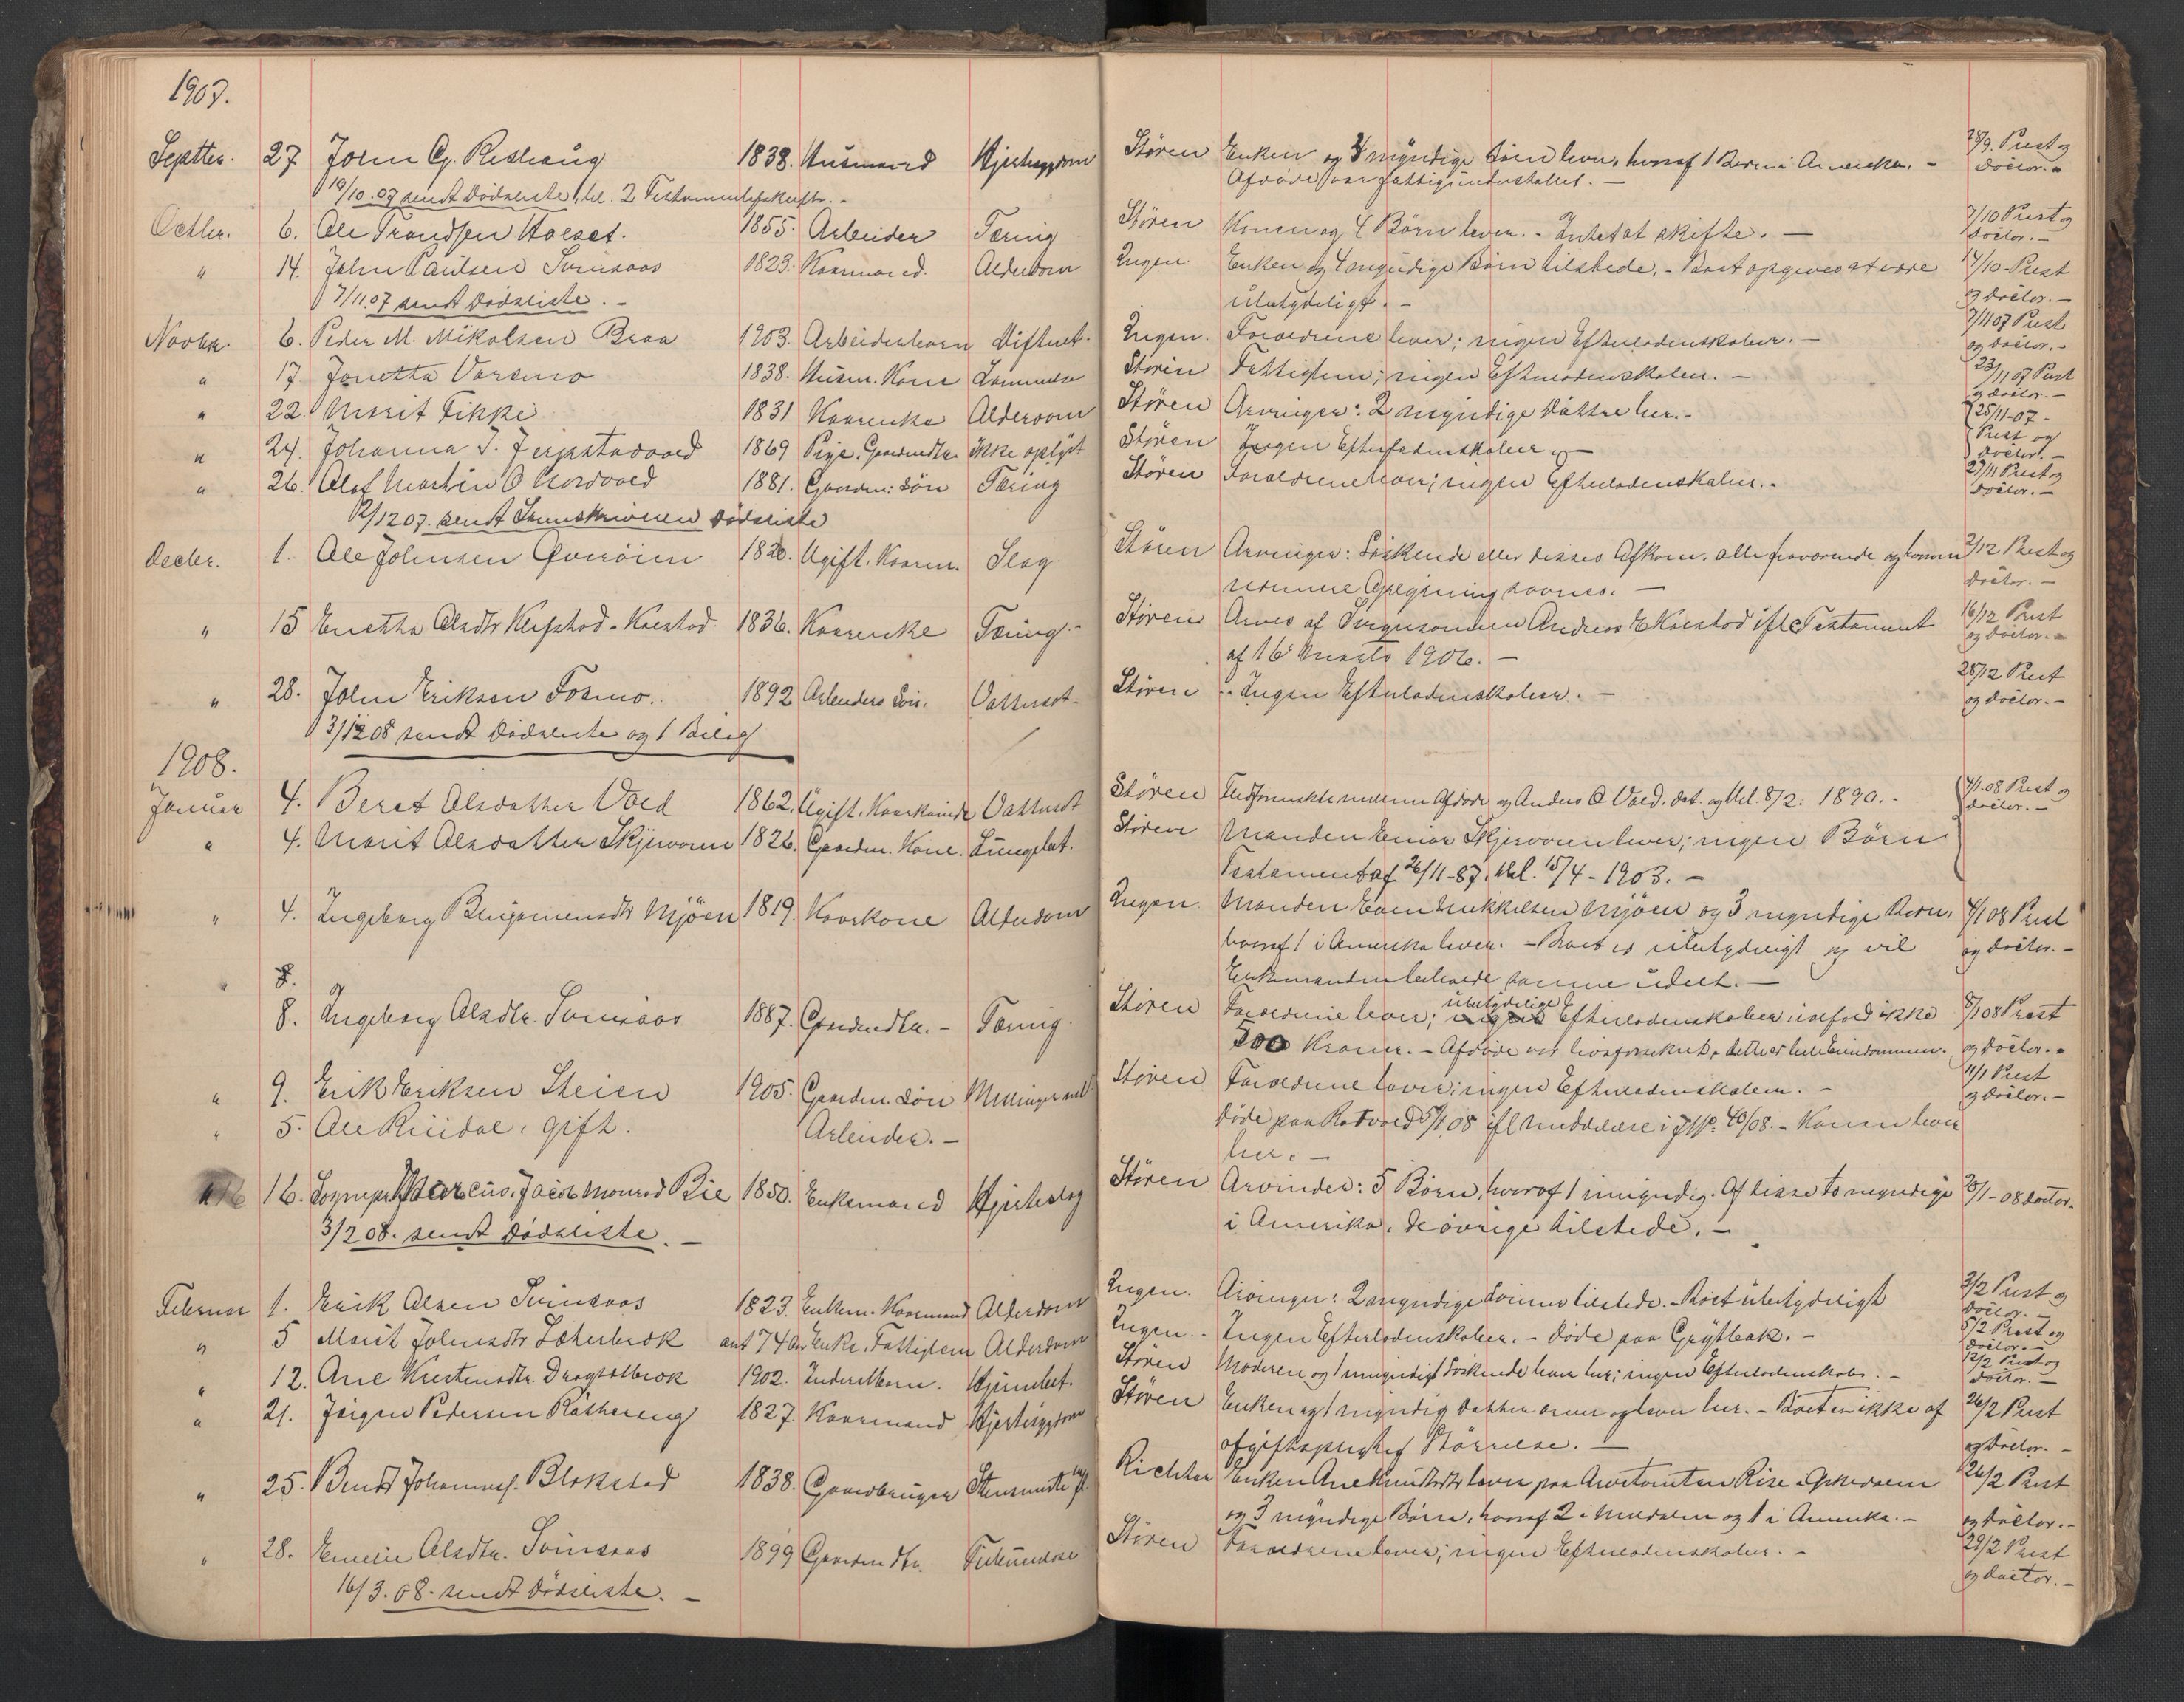 1907.
Septbr. 27 John G. Reshaug 1838. Husmand Hjertesygdom Støren Enken og 3 myndige Børn lever, hvoraf 1 Barn i Amerika. -
Afdøde var fattigunderstøttet. - 28/9. Præst og Doctor. -
19/10.07 sendt Dødsliste, tel. 2 Testamentsafskrifter. -
Octbr. 6. Ole Trondsen Hoeset. 1855. Arbeider Tæring Støren Konen og 4 Børn lever. - Intet at skifte. - 7/10 Præst og Doctor. -
" 14. John Paulsen Svinsaas 1823. Kaarmand. Alderdom Ingen Enken og 4 myndige Børn tilstede. - Boet opgives at være
ubetydeligt. - 14/10 - Præst og Doctor. -
7/11.07 sendt Dødsliste. -
Novbr. 6. Peder M. Mikalsen Braa 1903. Arbeiderbarn Difterit. Ingen. Forældrene lever; ingen Efterladenskaber. - 7/11 07 Præst og Doctor. -
" 17 Jonetta Vorsmo 1838. Husm. Kone Støren Fattiglem; ingen Efterladenskaber. - 23/11 07 Præst og Doctor. -
" 22. Marit Fikke 1831 Kaarenke Alderdom Støren Arvinger: 2 myndige Døttre her. - 25/11-07 -
" 24. Johanna J. Jerpstadvold 1869 Pige. Gaardmdtr. Ikke oplyst Støren Ingen Efterladenskaber. - Præst og Doctor. -
" 26. Olaf Martin O Nordvold 1881. Gaardm. Søn Tæring Støren Forældrene lever; ingen Efterladenskaber. - 27/11 Præst og Doctor. -
2/12 07. sendt Sorenskriveren Dødsliste
Decbr. 1. Ole Johnsen Øverøien 1820. Ugift. Kaarm. Slag. Støren Arvinger: Søskende eller disses Afkom. alle fraværende og
nærmere Oplysning savnes. - 2/12 Præst og Doctor. -
" 15 Enetta Olsdtr Klefstad - Kaestad. 1836. Kaarenke Tæring. - Støren Arves af Andreas E Kaestad ifl Testament
af 16 Marts 1906. - 16/12 Præst og Doctor. -
" 28. John Eriksen Fosmo. 1892 Arbeiders Søn. Vattersot - Støren Ingen Efterladenskaber. - 28/12 Præst og Doctor. -
3/1 08 sendt Dødsliste og 1 Bilag
1908.
Januar 4. Beret Olsdatter Vold 1862. Ugift. Kaarkvinde Vattersot Støren mellem Afdøde og Anders O Vold. dat. og tel. 8/2. 1890. - 4/1.08 Præst og Doctor. -
" 4. Marit Olsdatter Skjervoren 1826. Gaardm. Kone. Lungebet. Støren Manden Einar Skjervoren lever; ingen Børn
Testament af 26/11-87, tel. 15/4 - 1903. -
" 4. Ingeborg Benjaminsdtr Mjøen 1819. Kaarkone Alderdom Ingen. Manden Even Mikkelsen Mjøen og 3 myndige Børn,
hvoraf 1 i Amerika lever. - Boet er ubetydeligt og vil
Enkemanden beholde samme udelt. - 4/1 08 Præst og Doctor. -
" 8.
8. Ingeborg Olsdtr. Svinsaas 1887. Gaardmdtr. - Tæring Støren Forældrene lever; ubetydelige Efterladenskaber ialfald ikke
500 Kroner. - Afdøde var livsforsikret, dette er hele Eiendommen. 8/1 08 Præst og Doctor. -
" 9. Erik Eriksen Steien 1905. Gaardm. Søn Støren Forældrene lever; ingen Efterladenskaber. - 11/1 Præst og Doctor. -
" 5. Ole Riiidal, gift. Arbeider. - Døde paa Rotvold 5/1.08 ifl Meddelelse i J No. 40/08. - Konen lever
her. -
" 16. Sognepr. Marcus Jacob Monrad Bie 1850. Enkemand Hjerteslag Støren Arvinder: 5 Børn, hvoraf 1 umyndig. Af disse to myndige
i Amerika. de øvrige tilstede. - 20/1 - 08 Doctor.
3/2 08. sendt Dødsliste. -
Februar 1. Erik Olsen Svinsaas 1823. Enkem. Kaarmand Alderdom Ingen. Arvinger: 2 myndige Sønner tilstede. - Boet ubetydeligt 3/2 Præst og Doctor. -
" 5 Marit Johnsdtr Læterbæk ant 74 Aar Enke. Fattiglem Alderdom Ingen. - Ingen Efterladenskaber. - Døde paa Grytbak. - 5/2 Præst og Doctor. -
" 12. Ane Kirstensdtr. Dragsetbæk 1902. Inderstbarn. Hjernebet. Støren Moderen og 1 umyndigt Søskende lever her; ingen Efterladenskaber. - 12/2 Præst og Doctor. -
" 21. Jørgen Pedersen Røthereng 1827. Kaarmand Hjertesygdom Støren Enken og 1 myndig Datter arver og lever her. - Boet er ikke af
afgiftspligtig Størrelse. - 26/2 Præst og Doctor. -
" 25. Bendt Johannesf. Blokstad 1838. Gaardbruger Richter Enken Ane Knudsdtr lever paa Rise i Opdalen
og 3 myndige Børn, hvoraf 2 i Meldalen og 1 i Amerika. - 26/2 Præst og Doctor. -
" 28. Emelie Olsdtr. Svinsaas 1899 Gaardmdtr. Tuberkulose Støren Forældrene lever; ingen Efterladenskaber. - 29/2 Præst og Doctor. -
16/3. 08. sendt Dødsliste. -